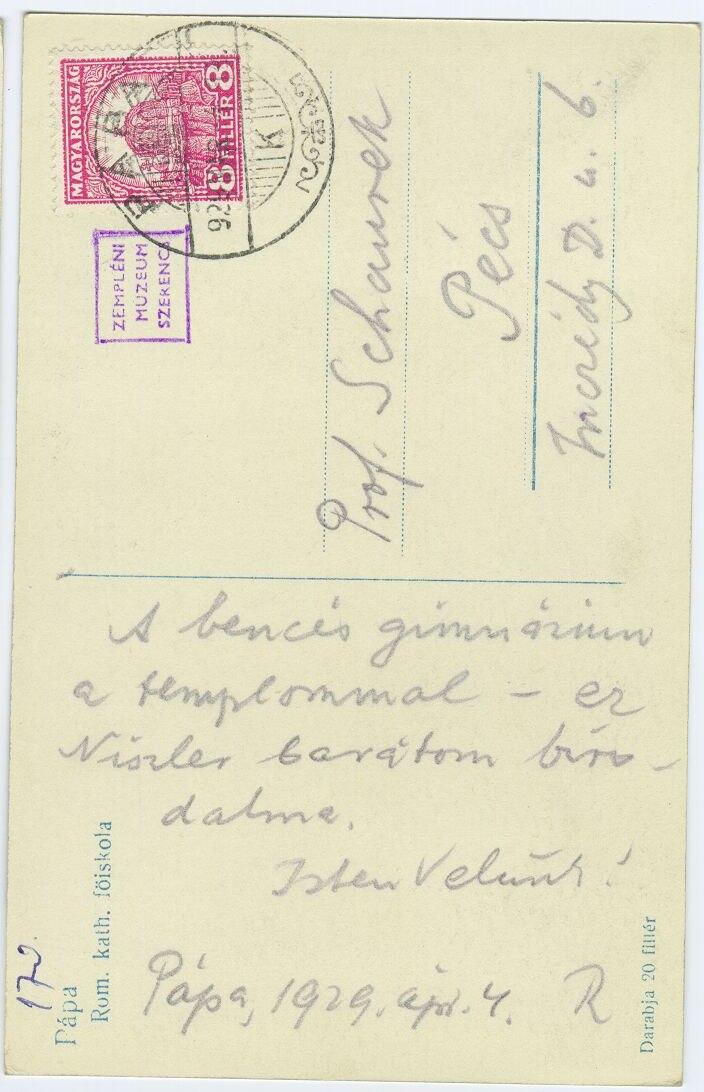 MAGYARORSZÁG
8 FILLÉR 8
PÁPA
ZEMPLÉNI
MUZEUM
SZERENCS
Prof. Schaurek
Pécs
Inczédy D. u. 6.
A bencés gimnázium
a templommal – ez
Niszler barátom biro-
dalma.
Isten Velünk!
Pápa, 1929. ápr. 4. R
170.
Pápa
Rom. kath. főiskola
Darabja 20 fillér